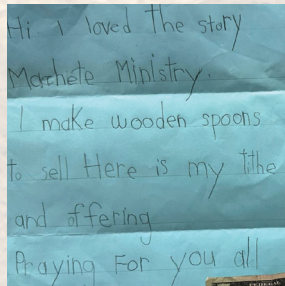 Hi I loved the story
Machete Ministry.
I make wooden spoons
to sell Here is my tithe
and offering
Praying For you all
FEDERAL